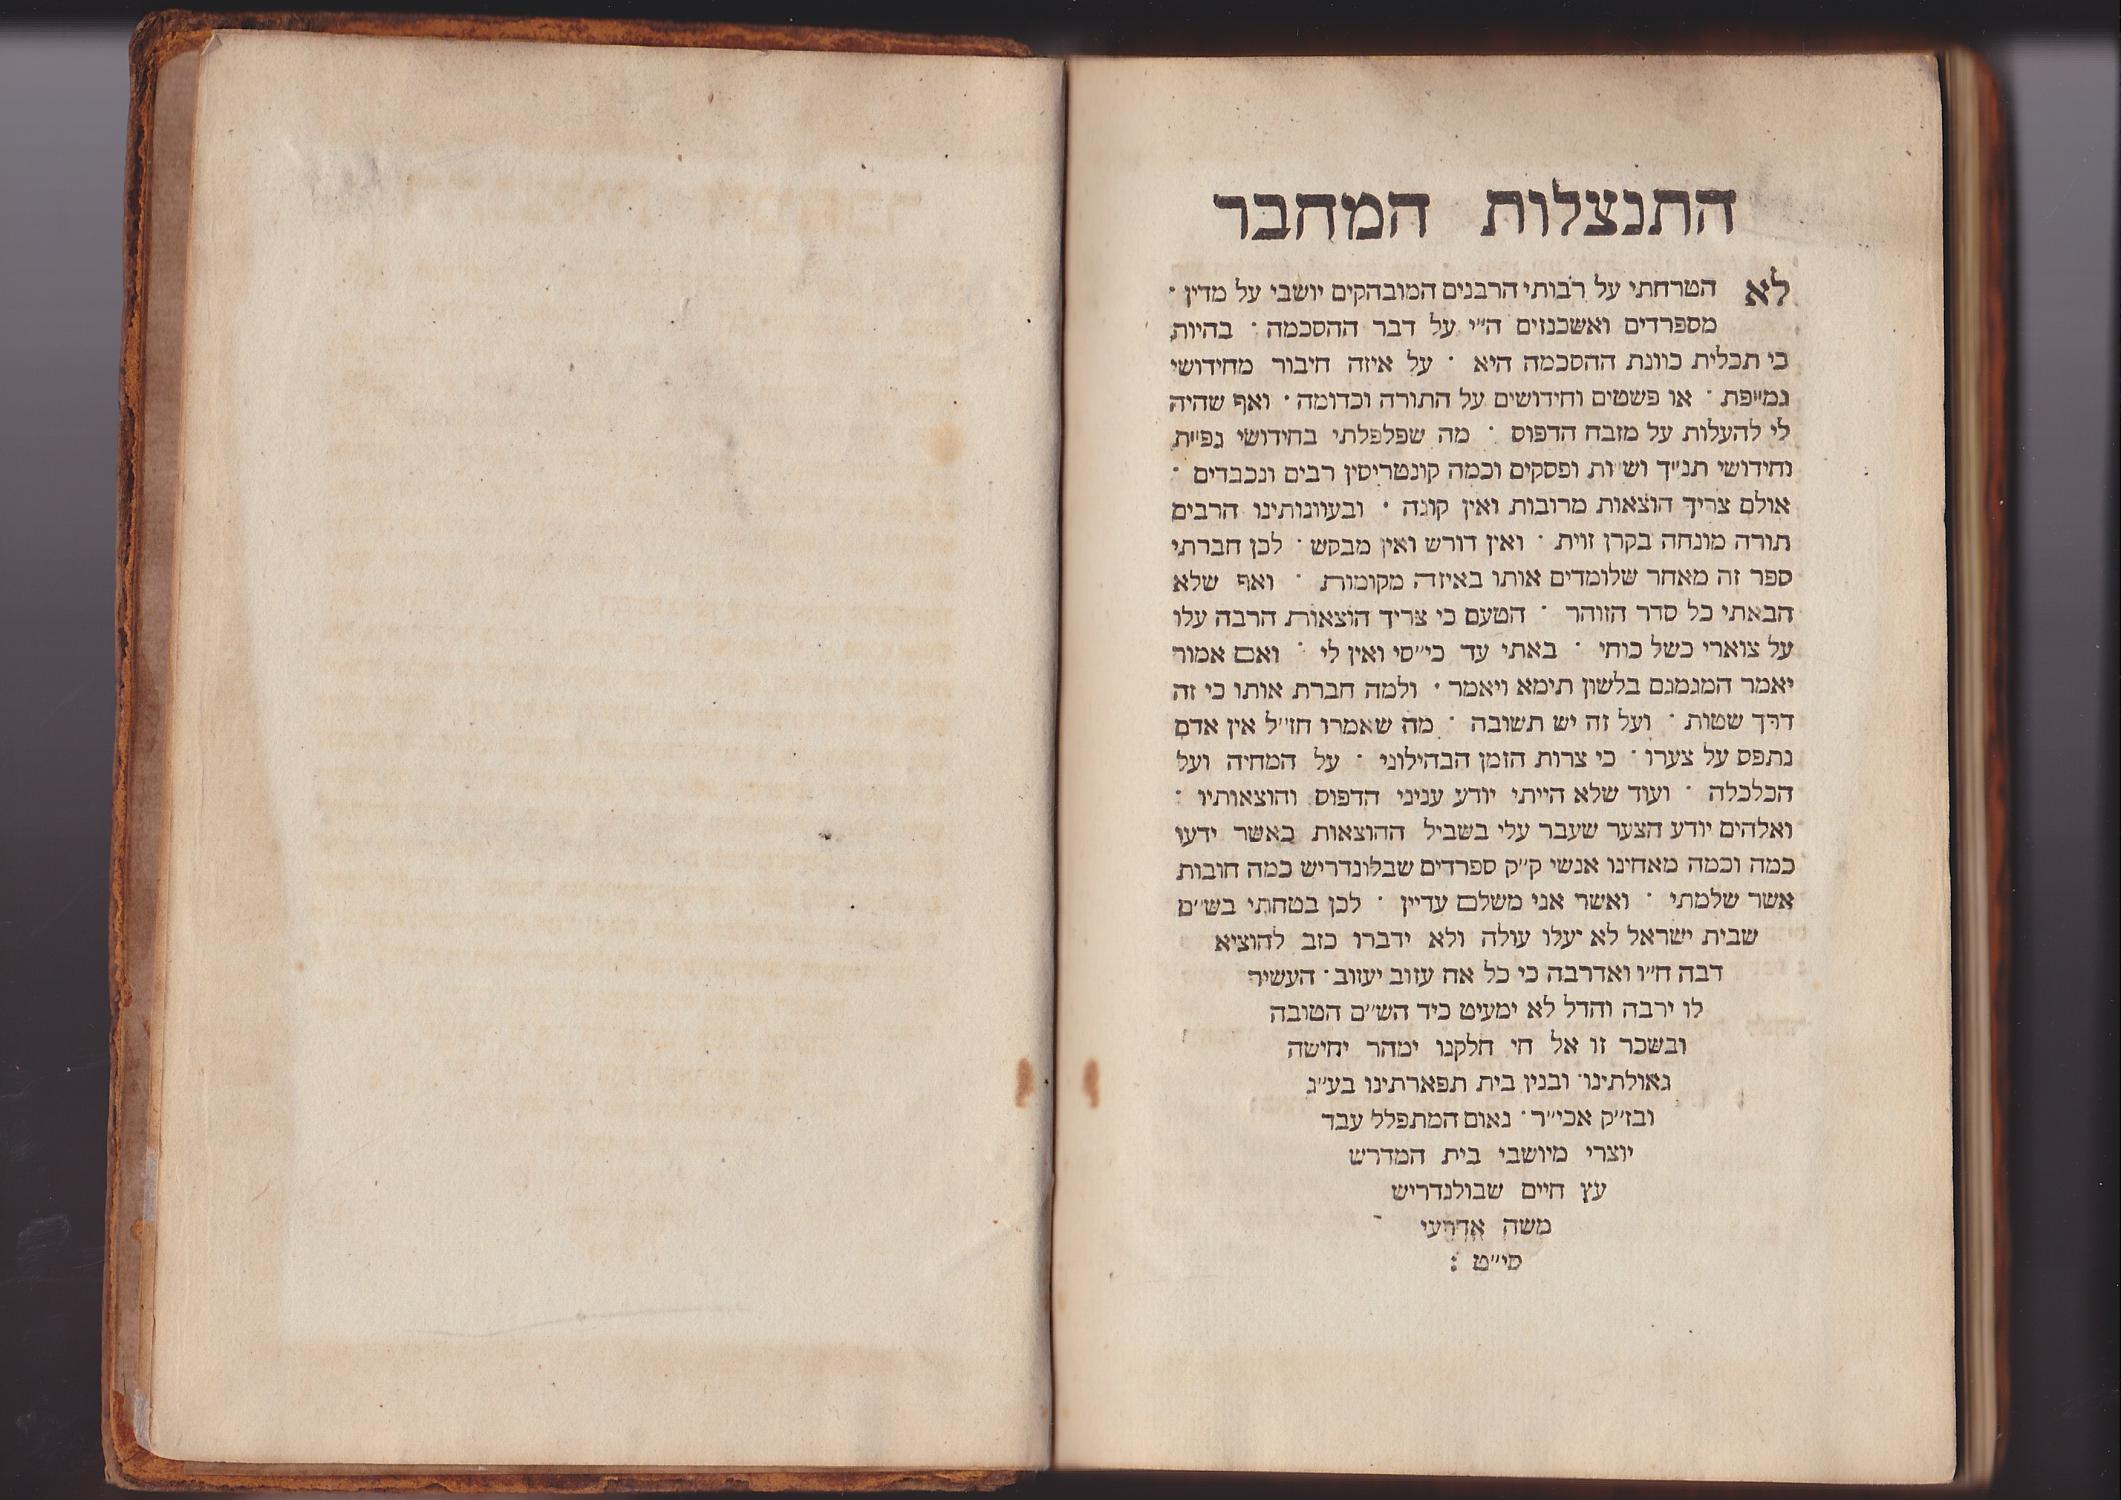 התנצלות המחבר
לא הטרחתי על רבותי הרבנים המובהקים יושבי על מדין ·
מספרדים ואשכנזים ה״י על דבר ההסכמה · בהיות
כי תכלית כוונת ההסכמה היא · על איזה חיבור מחידושי
גמ״פת · או פשטים וחידושים על התורה וכדומה · ואף שהיה
לי להעלות על מזבח הדפוס · מה שפלפלתי בחידושי גפ״ת
וחידושי תנ״ך וש״ות ופסקים וכמה קונטריסין רבים ונכבדים ·
אולם צריך הוצאות מרובות ואין קונה · ובעוונותינו הרבים
תורה מונחה בקרן זוית · ואין דורש ואין מבקש · לכן חברתי
ספר זה מאחר שלומדים אותו באיזה מקומות · ואף שלא
הבאתי כל סדר הזוהר · הטעם כי צריך הוצאות הרבה עלו
על צוארי כשל כוחי · באתי עד כי״סי ואין לי · ואם אמור
יאמר המגמגם בלשון תימא ויאמר · ולמה חברת אותו כי זה
דרך שטות · ועל זה יש תשובה · מה שאמרו חז״ל אין אדם
נתפס על צערו · כי צרות הזמן הבהילוני · על המחיה ועל
הכלכלה · ועוד שלא הייתי יודע עניני הדפוס והוצאותיו ·
ואלהים יודע הצער שעבר עלי בשביל ההוצאות כאשר ידעו
כמה וכמה מאחינו אנשי ק״ק ספרדים שבלונדריש כמה חובות
אשר שלמתי · ואשר אני משלם עדיין · לכן בטחתי בש״ם
שבית ישראל לא יעלו עולה ולא ידברו כזב להוציא
דבה ח״ו ואדרבה כי כל אח עזוב יעזוב · העשיר
לו ירבה והדל לא ימעיט כיד הש״ם הטובה
ובשכר זו אל חי חלקנו ימהר יחישה
גאולתינו · ובנין בית תפארתינו בע״ג
ובז״ק אכי״ר · נאום המתפלל עבד
יוצרי מיושבי בית המדרש
עץ חיים שבולנדריש
משה אדרעי
סי״ט :